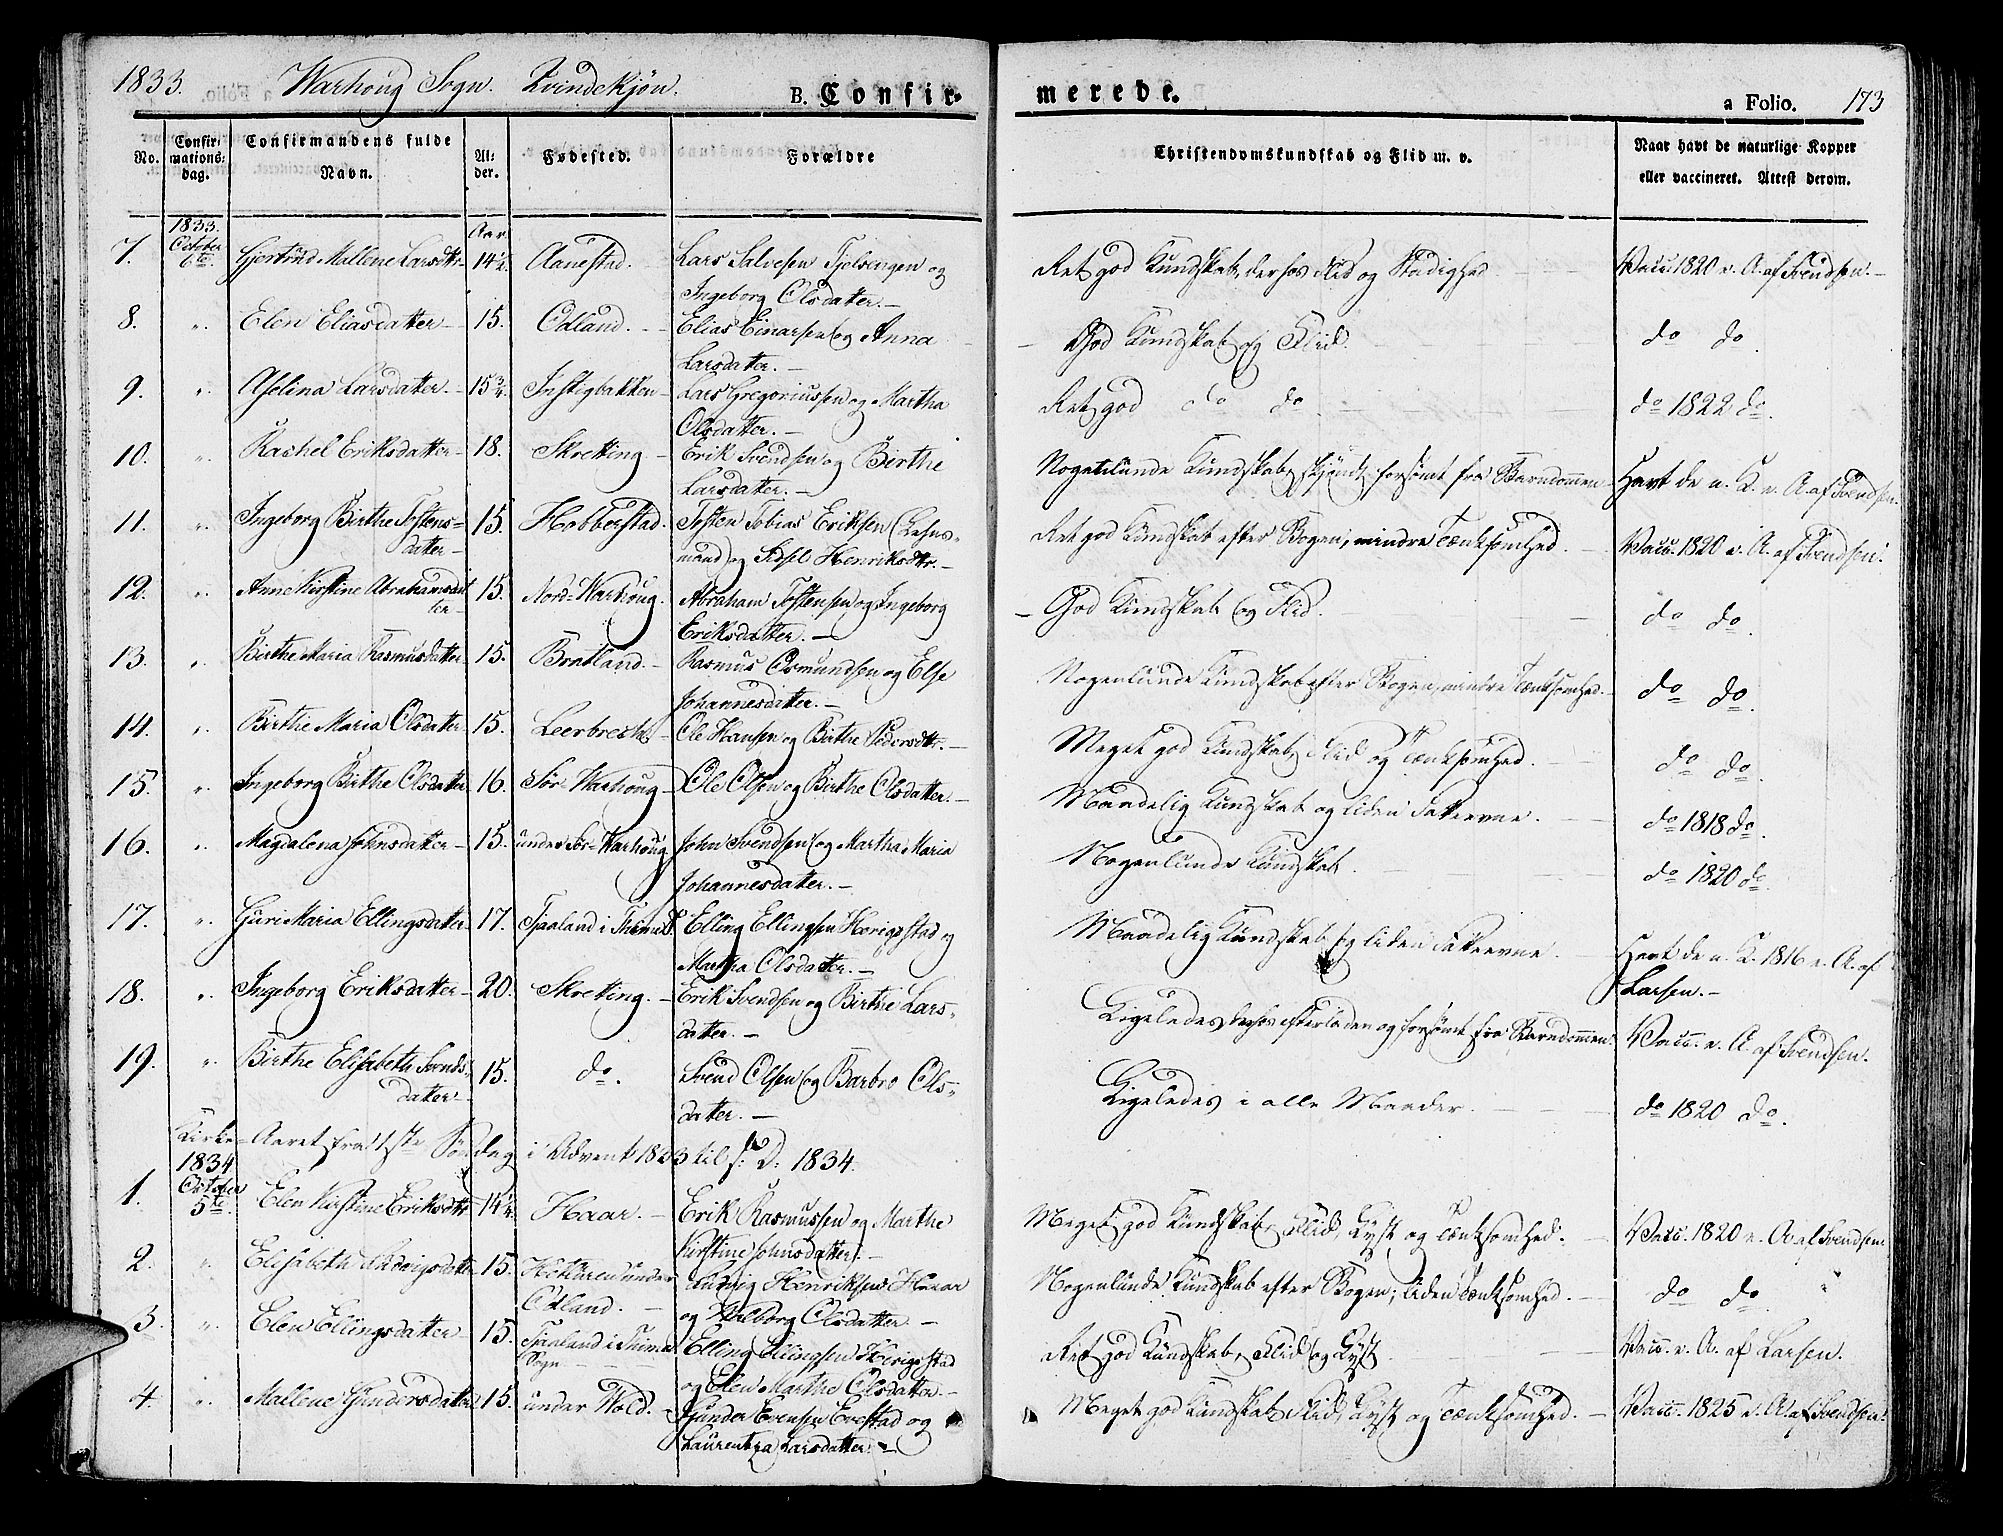 1833. Warhoug Sogn. Qvindekjøn. B. Confir- merede. a Folio. 173
No. Confirmations-dag. Confirmandens fulde Navn. Alder. Fødested. Forældre Christendomskundskab og Flid m. v. Naar havt de naturlige Kopper eller vaccineret. Attest derom.
1833. Aar
7. October 6te. Gjertrud Mallene Larsdttr 14½. Aanestad. Lars Salvesen Tjelsengen og Ret god Kundskab, derhos Flid og Stadighed Vacc. 1820 v. A. af Svendsen.
Ingeborg Olsdatter.
8. ". Elen Eliasdatter 15. Odland. Elias Einarsen og Anna God Kundskab og Flid. do do.
Larsdatter.
9. ". Aselina Larsdatter. 15¾. Instigbakken Lars Gregoriussen og Martha Ret god do do do 1822 do.
Olsdatter.
10. ". Rachel Eriksdatter 18. Skretting Erik Svendsen og Birthe Nogenlunde Kundskab, skjøndt forsømt fra Barndommen Havt de n. K. v. A. af Svendsen.
Larsdatter.
11. ". Ingeborg Birthe Tostens- 15. Hobberstad. Tosten Tobias Eriksen (Lehns- Ret god Kundskab efter Bogen, mindre Tænksomhed. Vacc. 1820 v. A. af Svendsen.
datter mand) og Sidsel Henriksdtr.
12. ". Anne Kirstine Abrahamsdat 15. Nord-Warhoug. Abraham Tostensen og Ingeborg God Kundskab og Flid. do do.
ter Eriksdatter.
13. ". Birthe Maria Rasmusdatter 15. Bratland. Rasmus Osmundsen og Else Nogenlunde Kundskab efter Bogen, mindre Tænksomhed. do do.
Johannesdatter.
14. ". Birthe Maria Olsdatter 15. Leerbrech Ole Hansen og Birthe Pedersdtr. Meget god Kundskab, Flid og Tænksomhed. do do.
15. ". Ingeborg Birthe Olsdatter 16. Sør-Warhoug Ole Olsen og Birthe Olsdatter. Maadelig Kundskab og liden Fatteevne. do 1818 do.
16. ". Magdalena Johnsdatter 15. under Sør-Warhoug John Svendsen og Martha Maria Nogenlunde Kundskab. do 1820 do.
Johannesdatter.
17. ". Guri Maria Ellingsdatter 17. Tjaaland i Thime S. Elling Ellingsen Herigstad og Maadelig Kundskab og liden Fatteevne. Havt de n. K. 1816 v. A. af
Martha Olsdatter. Larsen.
18. ". Ingeborg Eriksdatter 20. Skretting. Erik Svendsen og Birthe Lars- Ligeledes, derhos efterladen og forsømt fra Barndommen. Vacc. v. A. af Svendsen.
datter.
19. ". Birthe Elisabeth Svends- 15. do. Svend Olsen og Barbro Ols- Ligeledes i alle Maader. do 1820 do.
datter datter.
Kirke-Aaret fra 1ste Søndag i Advent 1833 til s: D: 1834.
1834
1. October 5te. Elen Kirstine Eriksdtr 14½. Haar. Erik Rasmussen og Marthe Meget god Kundskab, Flid, Lyst og Tænksomhed. Vacc. 1820 v. A. af Svendsen.
Kirstine Johnsdatter.
2. ". Elisabeth Ludvigsdatter 15. under Ludvig Henriksen Haar Nogenlunde Kundskab efter Bogen; liden Tænksomhed. do do "
Odland. og Wilborg Olsdatter
3. ". Elen Ellingsdatter 15. Tjaaland i Thime Elling Ellingsen Herigstad Ret god Kundskab, Flid og Lyst Vacc. v. A. af Larsen.
Sogn og Elen Marthe Olsdatter.
4. ". Mallene Gundersdatter 15. under Wold. Gunder Evensen Evestad og Meget god Kundskab, Flid, Lyst og Tænksomhed. Vacc. 1825 v. A. af Svendsen.
Laurentza Larsdatter.